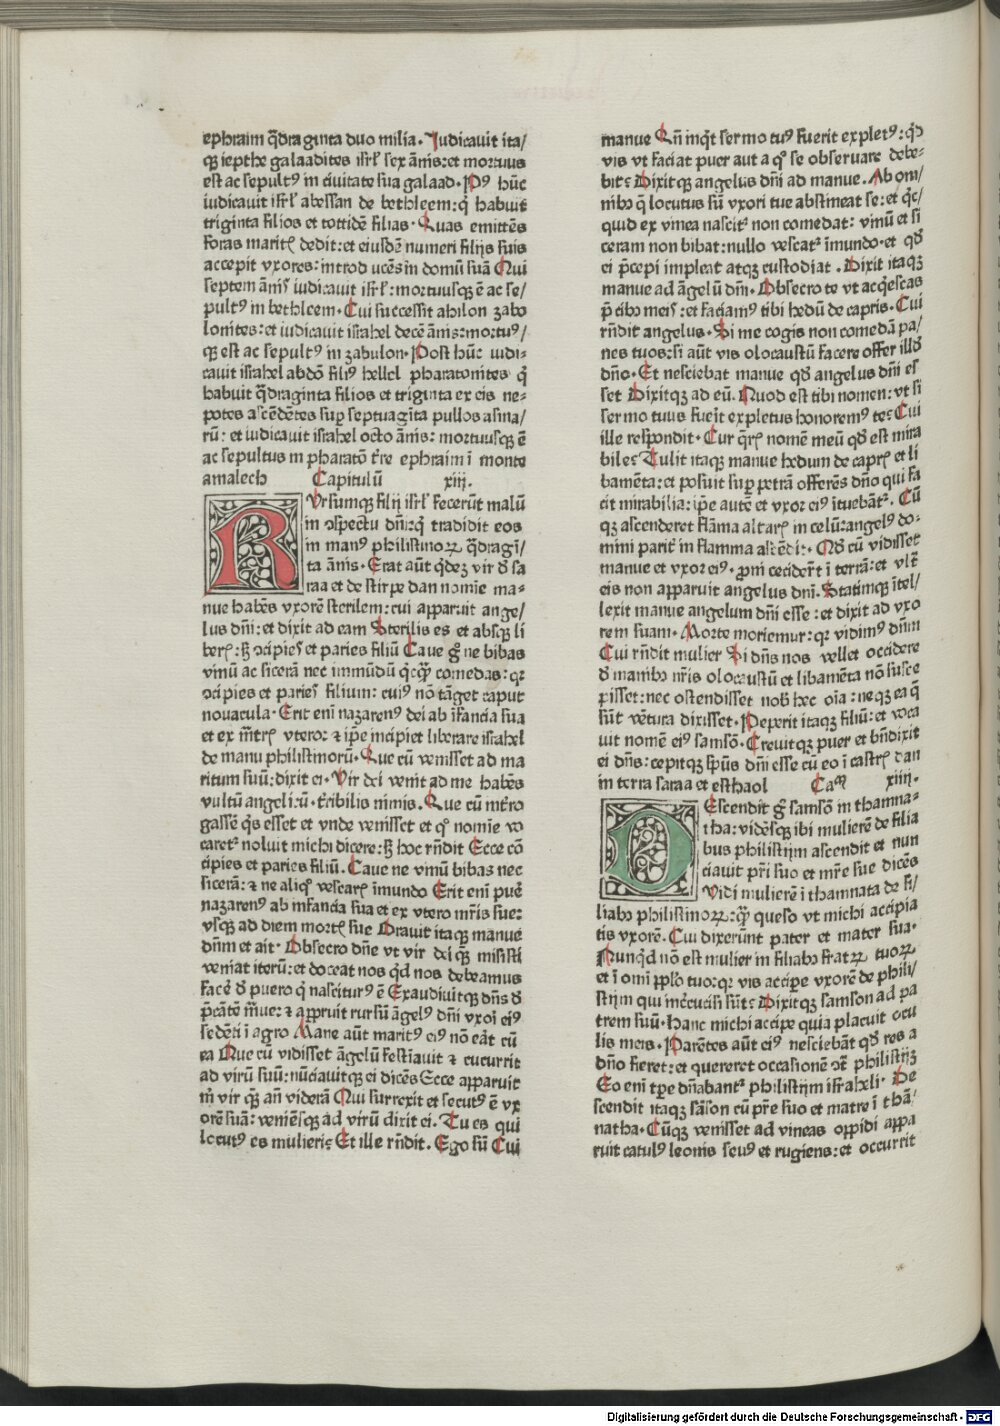 ephraim q̄draginta duo milia. Iudicauit ita/
qꝫ iepthe galaadites isrl̄ sex ānis: et mortuus
est ac sepultꝰ in ciuitate sua galaad. Pꝰ hūc
iudicauit isrl̄ abessan de bethleem: q̄ habuit
triginta filios et totidē filias. Quas emittēs
foras maritꝭ dedit: et eiusdē numeri filijs suis
accepit vxores: introducēs in domū suā Qui
septem ānis iudicauit isrl̄: mortuusqꝫ ē ac se/
pultꝰ in bethleem. Cui successit ahilon zabo
lonites: et iudicauit israhel decē ānis: mortuꝰ/
qꝫ est ac sepultꝰ in zabulon. Post hūc iudi-
cauit israhel abdō filiꝰ hellel pharatonites q̄
habuit q̄draginta filios et triginta ex eis ne-
potes ascēdētes suꝑ septuagīta pullos asina/
rū: et iudicauit israhel octo ānis: mortuusqꝫ ē
ac sepultus in pharatō t̄re ephraim ī monte
amalech Capitulū xiij.
RVrsumqꝫ filij isrl̄ fecerūt malū
in ꝯspectu dn̄i: q̄ tradidit eos
in manꝰ philistinoꝝ q̄dragī/
ta ānis. Erat aūt q̄dez vir d̄ sa
raa et de stirpe dan nomīe ma-
nue habēs vxorē sterilem: cui apparuit ange/
lus dn̄i: et dixit ad eam Sterilis es et absqꝫ li
berꝭ: sꝫ ꝯcipies et paries filiū Caue g̊ ne bibas
vinū ac sicerā nec immūdū qcqꝙ comedas: qꝛ
ꝯcipies et paries filium: cuiꝰ nō tāget caput
nouacula. Erit eni nazarenꝰ dei ab īfancia sua
et ex m̄rꝭ vtero: ⁊ ip̄e incipiet liberare israhel
de manu philistinorū. Que cū venisset ad ma
ritum suū: dixit ei. Vir dei venit ad me habēs
vultū angelicū. t̄ribilis nimis. Que cū int̄ro
gassē q̄s esset et vnde venisset et qͦ nomīe vo
caretꝰ noluit michi dicere: sꝫ hoc rn̄dit Ecce cō
cipies et paries filiū. Caue ne vinū bibas nec
sicerā: ⁊ ne aliqͦ vescarꝭ īmundo Erit eni puer̄
nazarenꝰ ab infancia sua et ex vtero mr̄is sue:
vsqꝫ ad diem mortꝭ sue Orauit itaqꝫ manue
dn̄m et ait. Obsecro dn̄e vt vir dei qꝫ misisti
veniat iterū: et doceat nos qd̄ nos debeamus
facē d̄ puero q̄ nasciturꝰ ē Exaudiuitqꝫ dn̄s d̄
p̄cātē m̄nue: ⁊ apparuit rursū āgelꝰ dn̄i vxori eiꝰ
sedēti ī agro Mane aūt maritꝰ eiꝰ nō eāt cū
ea Que cū vidisset āgelū festīauit ⁊ cucurrit
ad virū suū: nūciauitqꝫ ei dicēs Ecce apparuit
m̄ vir qꝫ an̄ viderā Qui surrexit et secutꝰ ē vx
orē suā: veniēsqꝫ ad virū dixit ei. Tu es qui
locutꝰ es mulieri: Et ille rn̄dit. Ego sū Cui
manue Qn̄ inq̄t sermo tuꝰ fuerit expletꝰ: qd̄
vis vt faciat puer aut a qͦ se obseruare debe-
bit: Dixitqꝫ angelus dn̄i ad manue. Ab om/
nibꝫ q̄ locutus sū vxori tue abstineat se: et qc̄/
quid ex vinea nascitꝰ non comedat: vinū et si
ceram non bibat: nullo vescatꝰ īmundo. et qd̄
ei p̄cepi impleat atqꝫ custodiat. Dixit itaqꝫ
manue ad āgelū dn̄i. Obsecro te vt acq̄escas
p̄cibꝫ meis: et faciamꝰ tibi hedū de capris. Cui
rn̄dit angelus. Si me cogis non comedā pa/
nes tuos: si aūt vis olocaustū facere offer illd̄
dn̄o. Et nesciebat manue qd̄ angelus dn̄i es
set Dixitqꝫ ad eū. Quod est tibi nomen: vt si
sermo tuus fuerit expletus honoremꝰ te: Cui
ille respondit. Cur q̄rꝭ nomē meū qd̄ est mira
bile: Tulit itaqꝫ manue hedum de caprꝭ et li
bamēta: et posuit suꝑ petrā offerēs dn̄o qui fa
cit mirabilia: ip̄e autē et vxor eiꝰ ītuebātꝰ. Cū
qꝫ ascenderet flāma altarꝭ in celū: angelꝰ do-
mini parit̄ in flamma ascēdit. Qd̄ cū vidisset
manue et vxor eiꝰ. proni ceciderūt ī terrā: et vlt̄
eis non apparuit angelus dn̄i. Statimqꝫ ītel/
lexit manue angelum dn̄i esse: et dixit ad vxo
rem suam. Morte moriemur: qꝛ vidimꝰ dn̄m
Cui rn̄dit mulier Si dn̄s nos vellet occidere
d̄ manibꝫ nr̄is olocaustū et libamēta nō susce
pisset: nec ostendisset nob̄ hec oīa: neqꝫ ea q̄
sūt vētura dixisset. Peperit itaqꝫ filiū: et voca
uit nomē eiꝰ samsō. Creuitqꝫ puer et bn̄dixit
ei dn̄s: cepitqꝫ sp̄us dn̄i esse cū eo ī castrꝭ dan
in terra saraa et esthaol Cam̄ xiiij.
DEscendit g̊ samsō in thamna-
tha: vidēsqꝫ ibi mulierē de filia
bus philistijm ascendit et nun
ciauit pr̄i suo et mr̄e sue dicēs
Vidi mulierē ī thamnata de fi/
liabꝫ philistinoꝝ: q̄ꝫ queso vt michi accipia
tis vxorē. Cui dixerūnt pater et mater sua.
Nunqd̄ nō est mulier in filiabꝫ fratꝝ tuoꝝ
et ī omī pp̄lo tuo: qꝛ vis accipe vxorē de phili/
stijm qui incr̄cucisi sūt: Dixitqꝫ samson ad pa
trem suū. Hanc michi accipe quia placuit ocu
lis meis. Parētes aūt eiꝰ nesciebāt qd̄ res a
dn̄o fieret: et quereret occasionē ꝯt̄ philistijꝫ
Eo eni tꝑe dn̄abantꝰ philistijm isrl̄raheli. De
scendit itaqꝫ sāson cū pr̄e suo et matre ī thā/
natha. Cūqꝫ venisset ad vineas oppidi appa
ruit catulꝰ leonis seuꝰ et rugiens: et occurrit
Digitalisierung gefördert durch die Deutsche Forschungsgemeinschaft - DFG